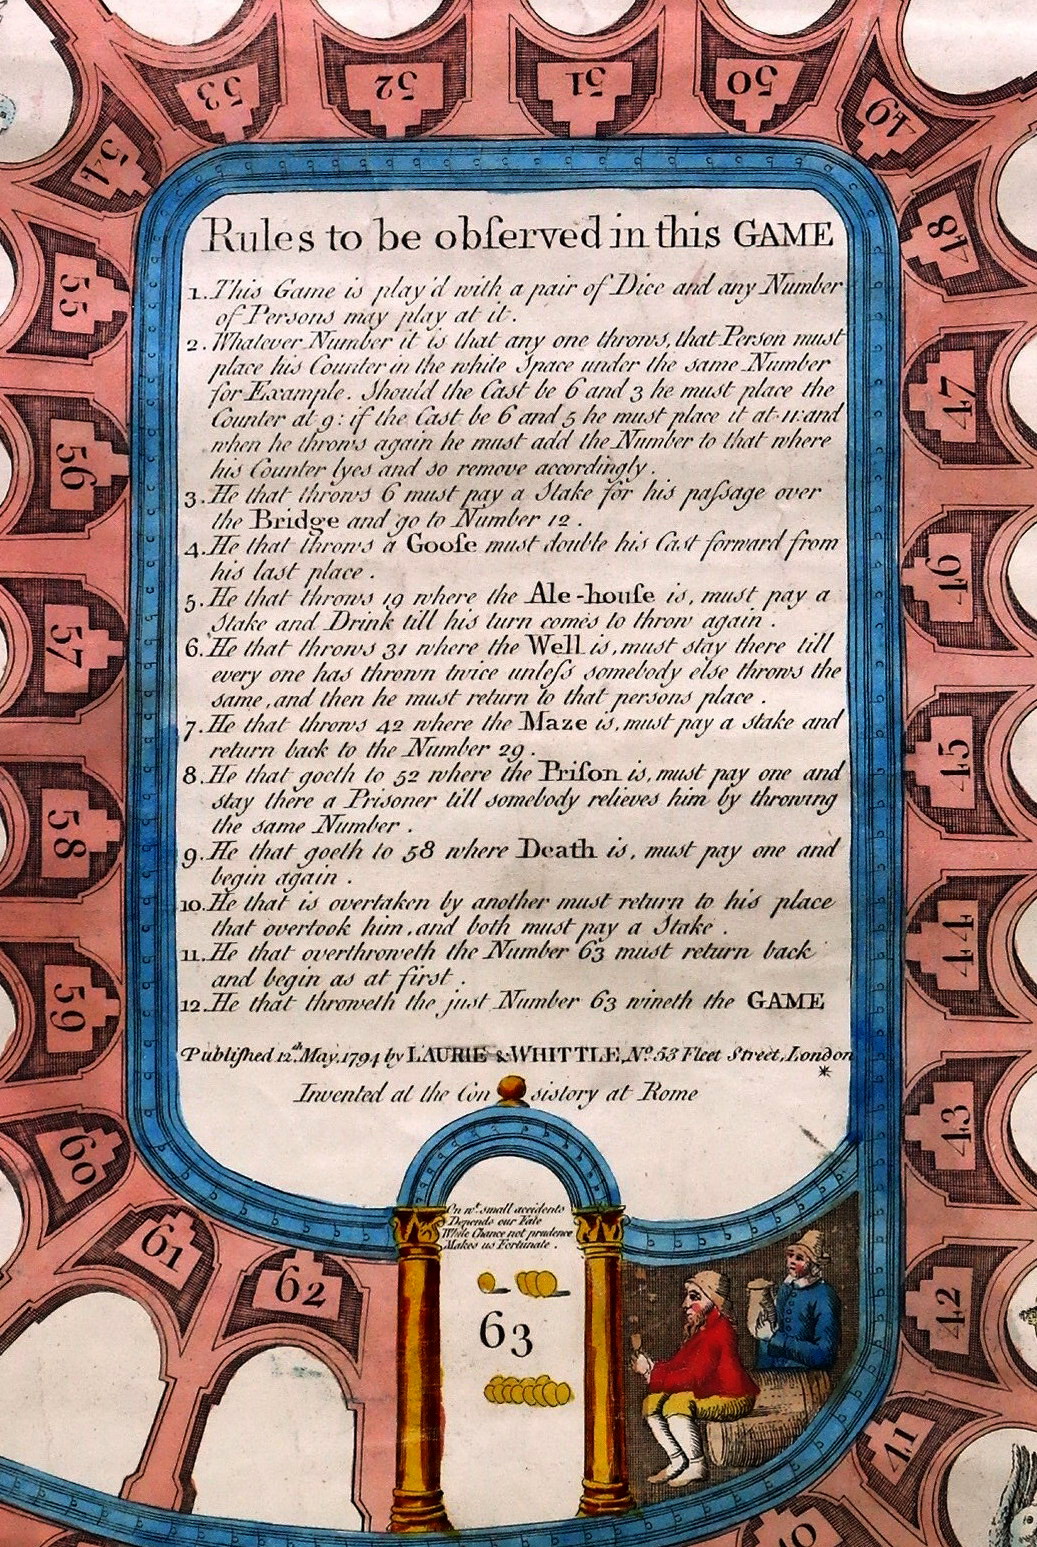 53
52
51
50
49
54
48
55
47
56
46
57
45
58
44
59
43
60
42
61
62
41
40
Rules to be obſerved in this GAME
1. This Game is play'd with a pair of Dice and any Number
of Persons may play at it.
2. Whatever Number it is that any one throws, that Person must
place his Counter in the white Space under the same Number
for Example. Should the Cast be 6 and 3 he must place the
Counter at 9: if the Cast be 6 and 5 he must place it at 11: and
when he throws again he must add the Number to that where
his Counter lyes and so remove accordingly.
3. He that throws 6 must pay a Stake for his paſsage over
the Bridge and go to Number 12.
4. He that throws a Gooſe must double his Cast forward from
his last place.
5. He that throws 19 where the Ale-houſe is, must pay a
Stake and Drink till his turn comes to throw again.
6. He that throws 31 where the Well is, must stay there till
every one has thrown twice unleſs somebody else throws the
same, and then he must return to that persons place.
7. He that throws 42 where the Maze is, must pay a stake and
return back to the Number 29.
8. He that goeth to 52 where the Priſon is, must pay one and
stay there a Prisoner till somebody relieves him by throwing
the same Number.
9. He that goeth to 58 where Death is, must pay one and
begin again.
10. He that is overtaken by another must return to his place
that overtook him, and both must pay a Stake.
11. He that overthroweth the Number 63 must return back
and begin as at first.
12. He that throweth the just Number 63 wineth the GAME
Publiſhed 12th May, 1794 by LAURIE & WHITTLE, No. 53 Fleet Street, London
*
Invented at the Con sistory at Rome
On wt. small accidents
Depends our Fate
While Chance not prudence
Makes us Fortunate.
63